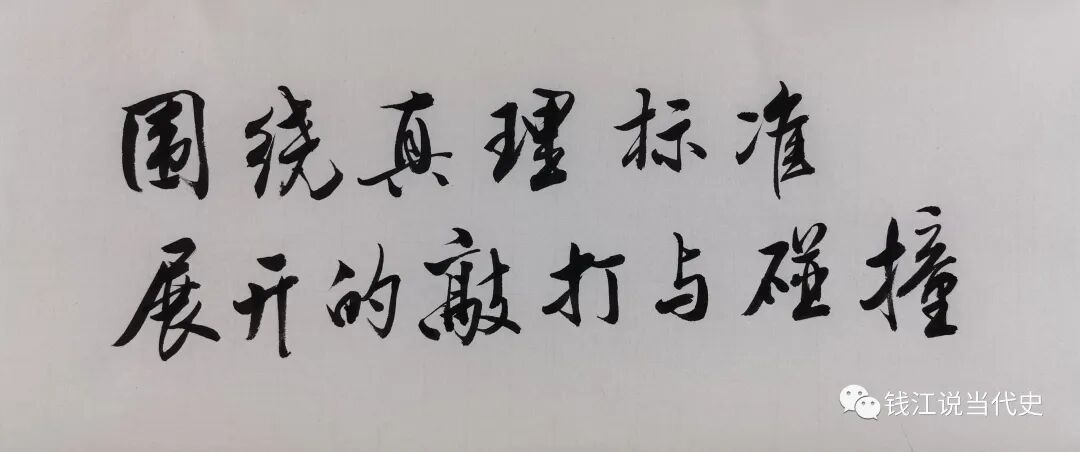 围绕真理标准
展开的敲打与碰撞
钱江说当代史